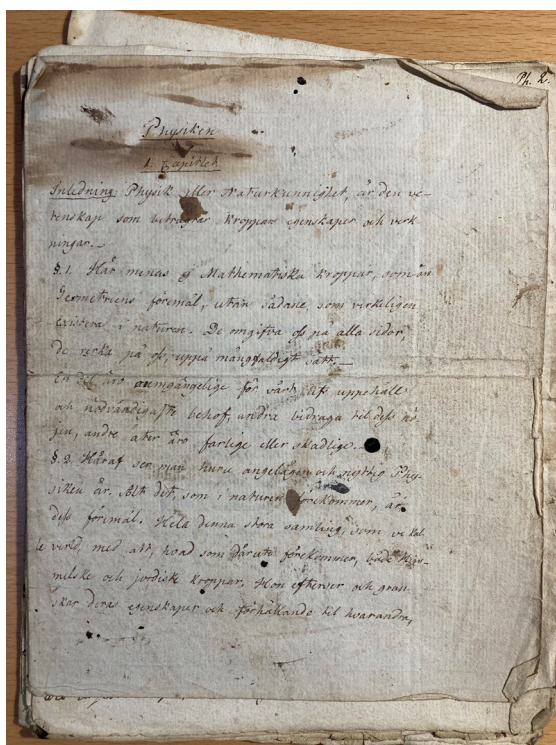 Ph. 2.
Physiken
1. Capitlet
Inledning. Physik eller Naturkunnighet, är den ve-
tenskap som utrager kroppars egenskaper och verk
ningar. -
§. 1. Här menas ej Mathematiska kroppar, som är
Geometriens föremål, utan sådane, som virkeligen
existera i naturen. De omgifva oss på alla sidor,
De verka på oss, uppå mångfaldigt sätt. -
En del äro oumgängelige för vårt lifs uppehäll
och nödvändigaste behof, andra bidraga til dess nö
jen, andre åter äro farlige eller skadlige. -
§. 2. Häraf ser man huru angelägen och nyttig Phy-
siken är. Alt det, som i naturen förekommer, är
dess föremål. Hela denna stora samling, som vi kal
le verld, med alt, hvad som däruti förekommer, både him-
melske och jordiske kroppar. Hon efterser och gran
skar deras egenskaper och förhållande til hvarandra,